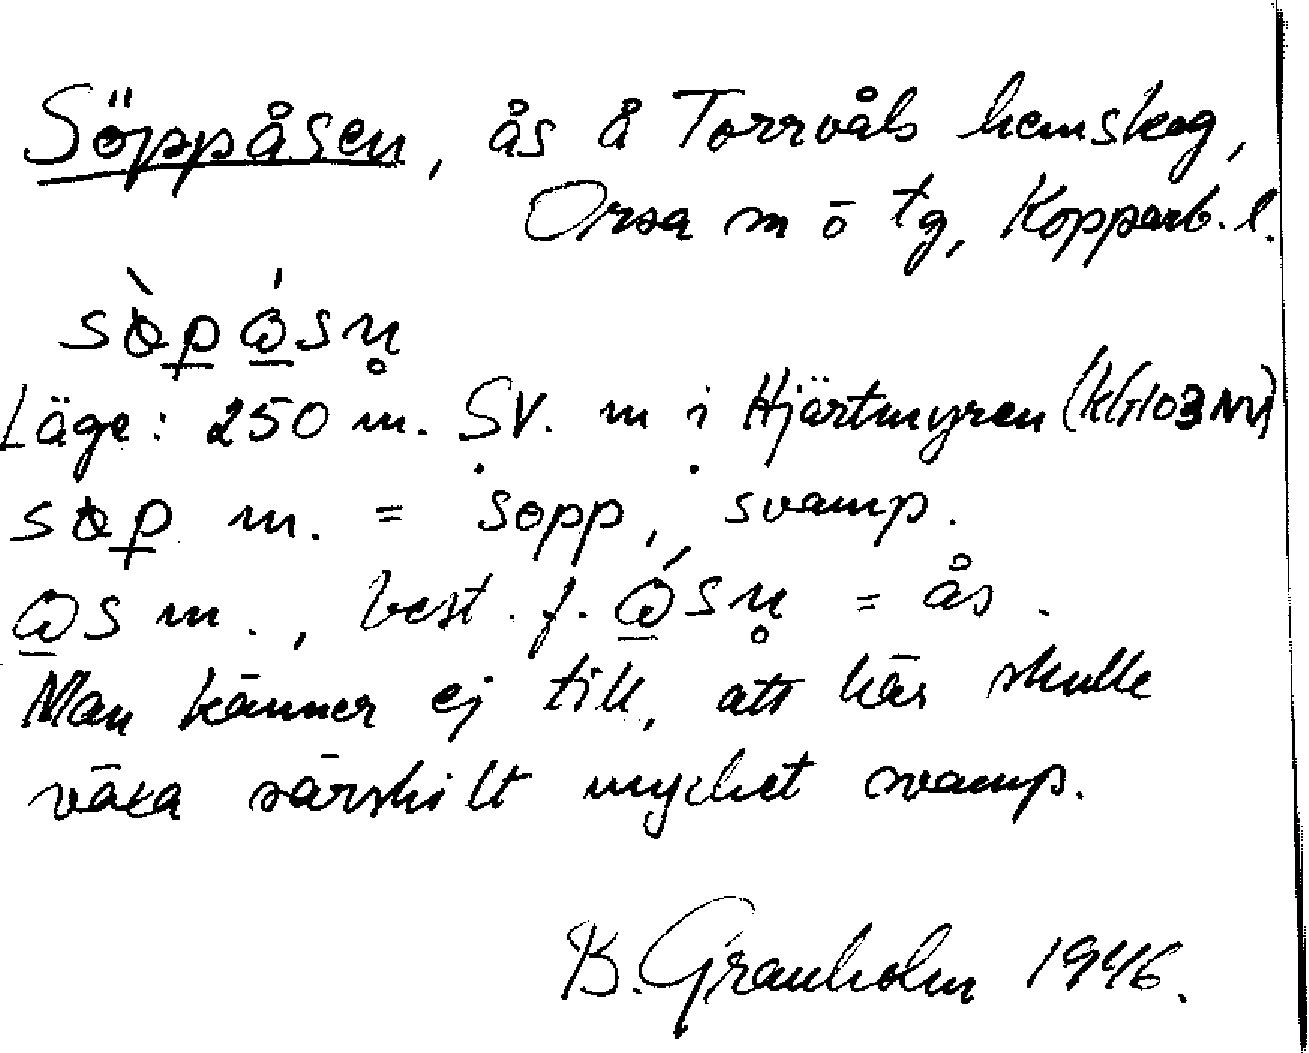 Söppåsen, ås å Torrvåls hemskog,
Orsa m ö tg, Kopparb. l.
Läge: 250 m. SV. m i Hjärtmyren (KG103NV)
m. = sopp, svamp.
m., best. f. = ås.
Man känner ej till, att här skulle
växa särskilt mycket svamp.
B. Granholm 1946.